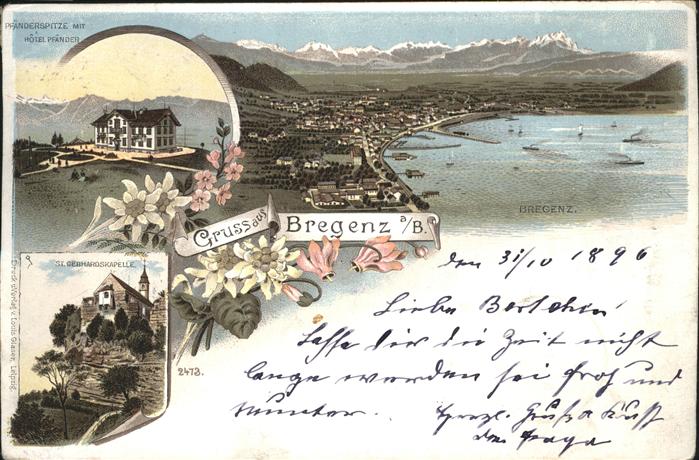 PFÄNDERSPITZE MIT
HÔTEL PFÄNDER
BREGENZ.
Gruss aus Bregenz a/B.
ST. GEBHARDSKAPELLE.
Druck u. Verlag v. Louis Glaser, Leipzig.
2473.
den 31/10 1896
Liebe
Lasse dir die Zeit nicht
lange werden sei froh und
munter. Herzl. Gruß & Kuß
dein Papa